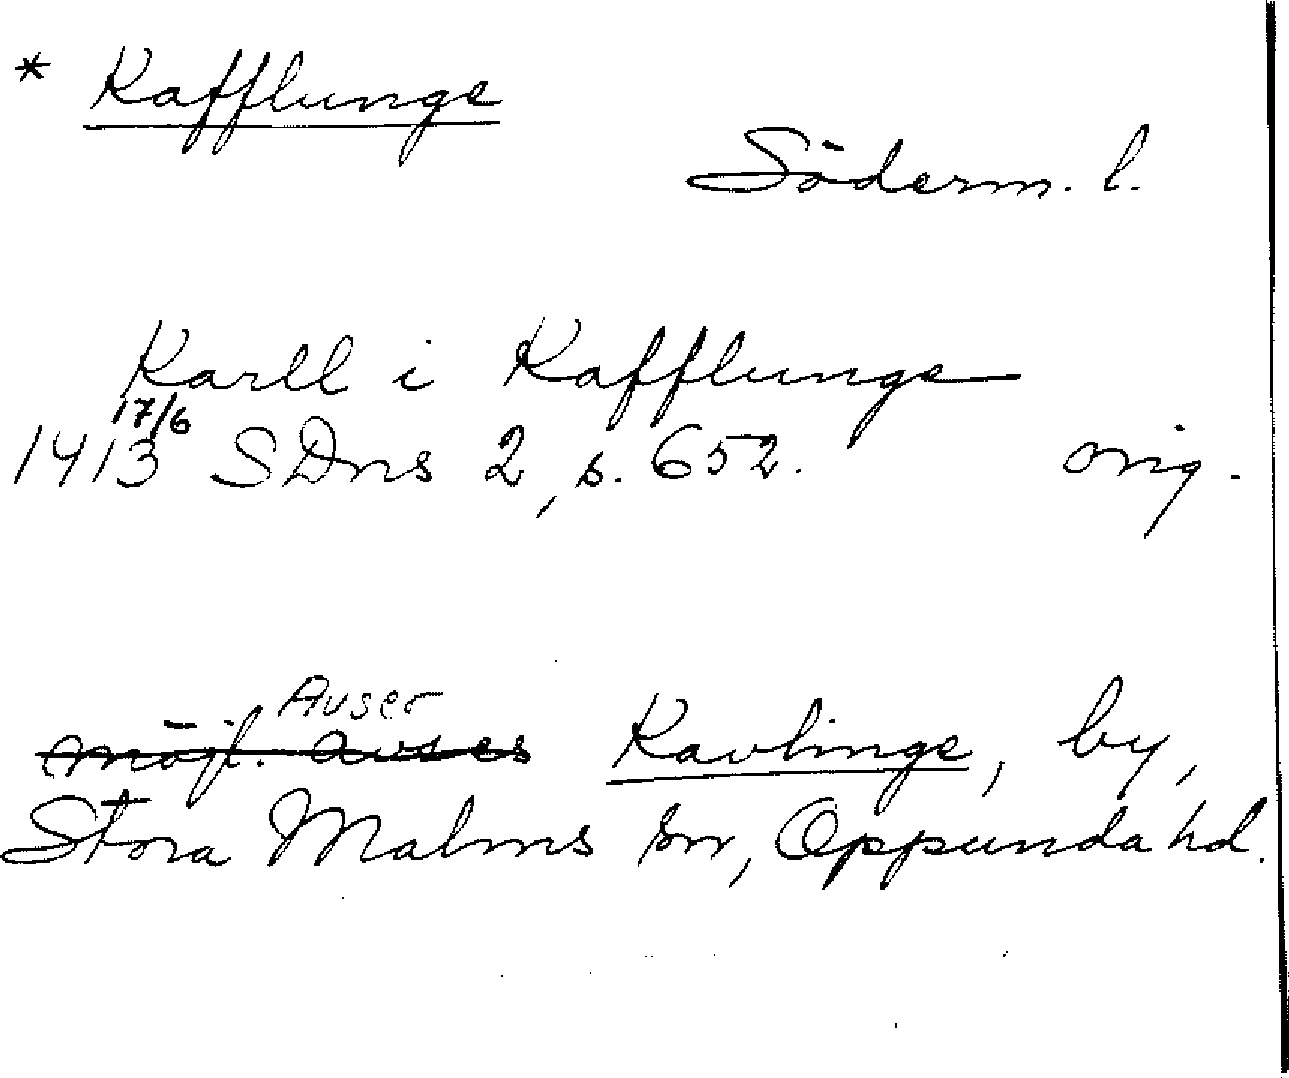 * Kafflunge
Söderm. l.
Karll i Kafflunge
17/6
1413 SDns 2, s. 652. orig.
Avser
möjl. avses Kavlinge, by,
Stora Malms sn, Oppunda hd.